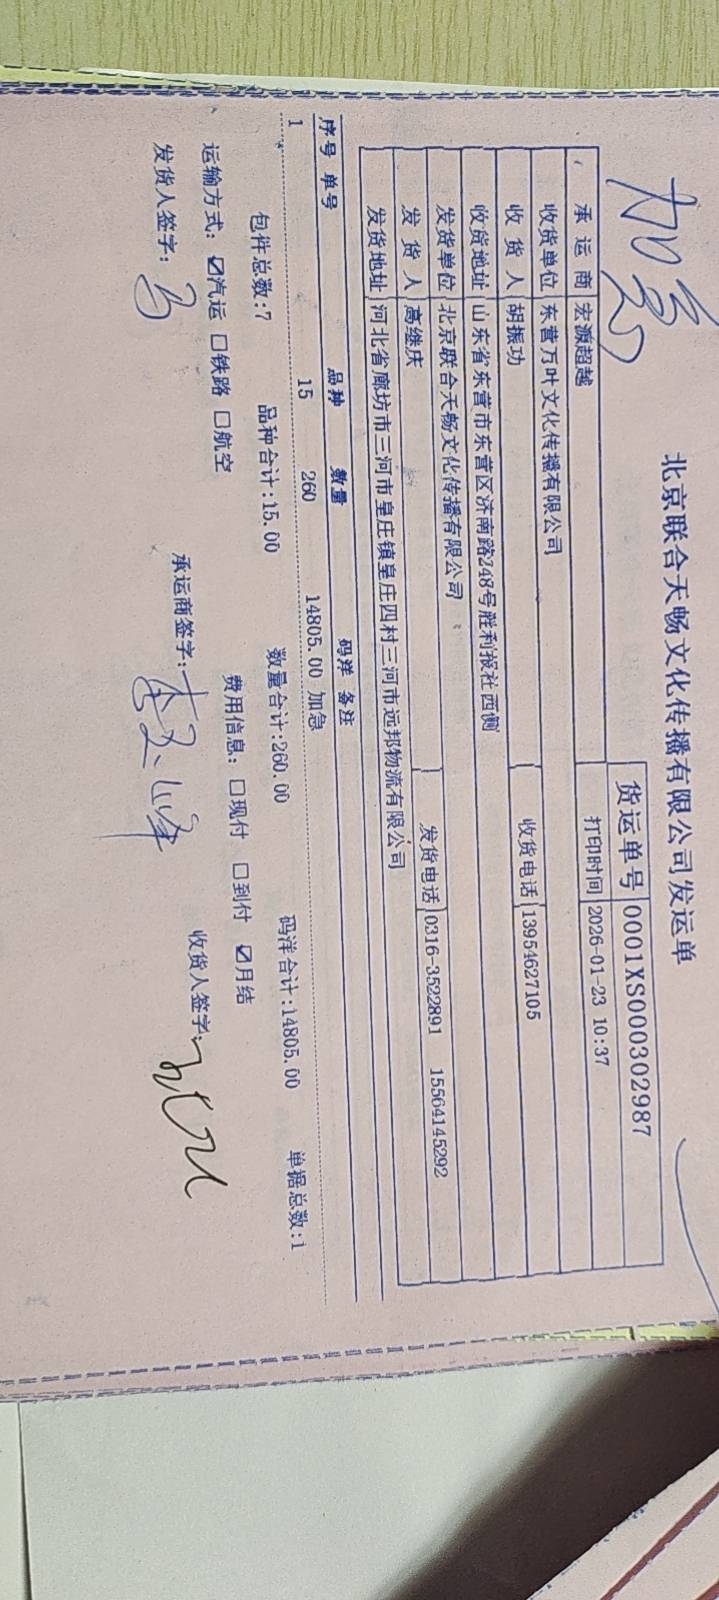 加急
北京联合天畅文化传播有限公司发运单
货运单号 0001XS000302987
承运商 宏源超越 打印时间 2026-01-23 10:37
收货单位 东营万叶文化传播有限公司
收货人 胡振功 收货电话 13954627105
收货地址 山东省东营市东营区济南路248号胜利报社西侧
发货单位 北京联合天畅文化传播有限公司
发货人 高继庆 发货电话 0316-3522891 15564145292
发货地址 河北省廊坊市三河市皇庄镇皇庄四村三河市远邦物流有限公司
序号 单号 品种 数量 码洋 备注
1 15 260 14805.00 加急
包件总数:7 品种合计:15.00 数量合计:260.00 码洋合计:14805.00 单据总数:1
运输方式: ☑汽运 □铁路 □航空 费用信息: □现付 □到付 ☑月结
发货人签字: 承运商签字: 收货人签字: